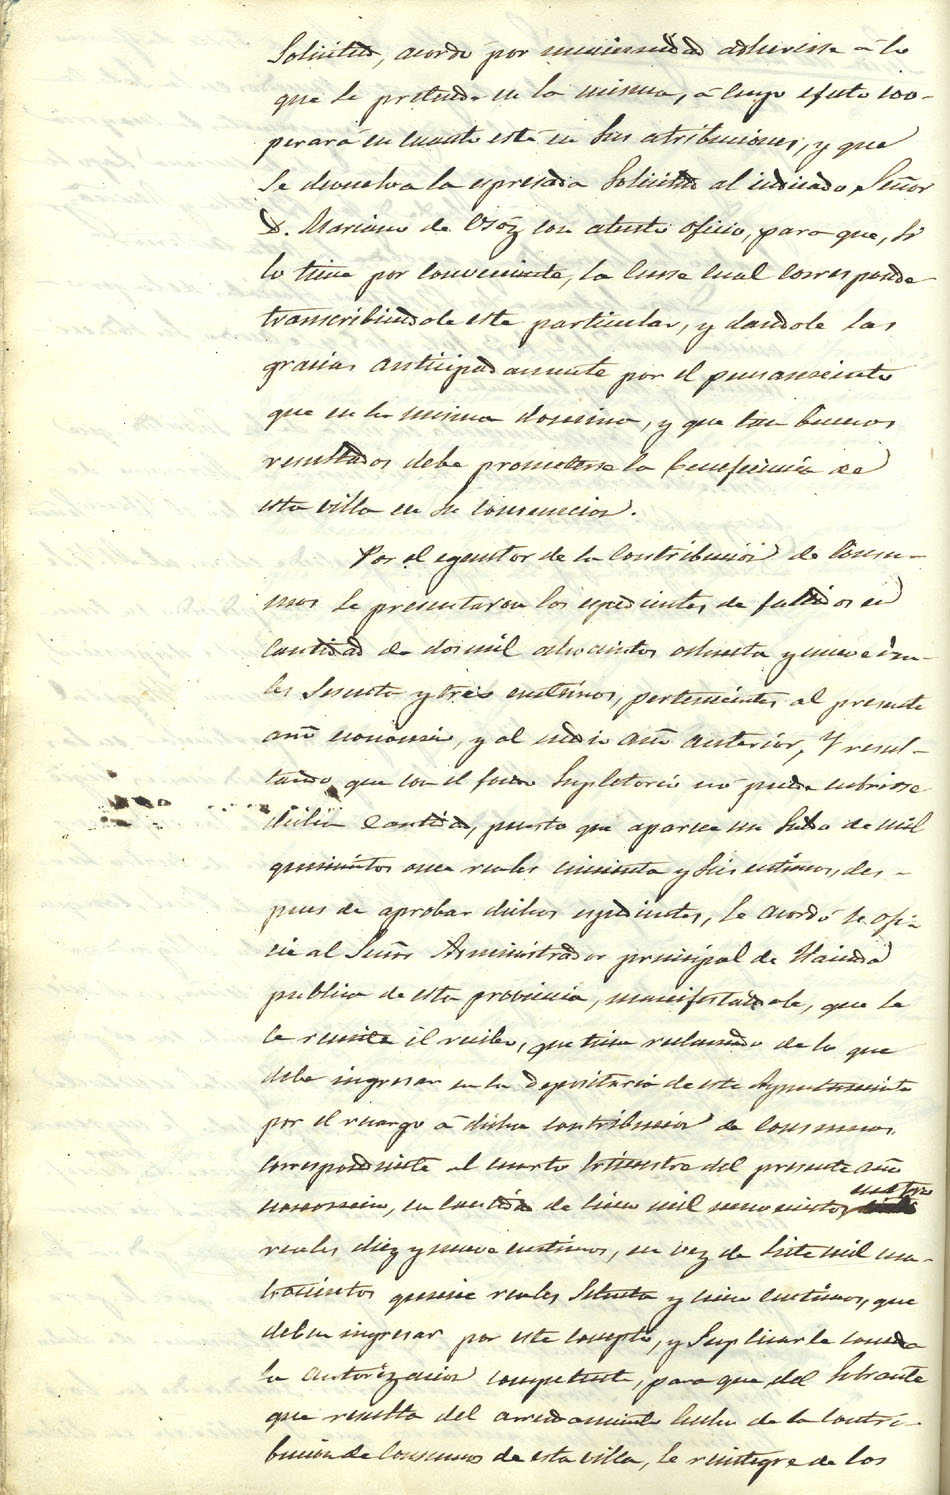 Solicitud, acordó por unanimidad adherirse á lo
que se pretende en la misma, á cuyo efecto coo-
perará en cuanto esté en sus atribuciones, y que
se devuelva la espresada Solicitud al indicado Señor
D. Mariano de Osóz con atento oficio, para que, si
lo tiene por conveniente, la curse cual corresponde
transcribiendole este particular, y dandole las
gracias anticipadamente por el pensamiento
que en la misma domina, y que tan buenos
resultados debe prometerse la beneficencia de
esta villa en su consecucion.
Por el egecutor de la contribucion de Consu-
mos se presentaron los espedientes de fallidos en
cantidad de dos mil ochocientos ochenta y nueve rea-
les sesenta y tres centimos, pertenecientes al presente
año economico, y al medio año anterior, Y resul-
tando que con el fondo Supletorio no puede cubrirse
dicha Cantidad, puesto que aparece un saldo de mil
quinientos once reales cincuenta y seis centimos, des-
pues de aprobar dichos espedientes, se acordó se ofi-
cie al Señor Administrador principal de Hacienda
publica de esta provincia, manifestandole, que se
le remite el recibo, que tiene reclamado de lo que
debe ingresar en la Depositaria de este Ayuntamiento
por el recargo á dicha contribucion de Consumos
correspondiente al cuarto trimestre del presente año
economico, en cantidad de cinco mil novecientos catorce
reales diez y nueve centimos, en vez de siete mil cua-
trocientos quince reales setenta y cinco centimos, que
deben ingresar por este concepto, y Suplicarle conceda
la autorizacion competente, para que del Sobrante
que resulta del arrendamiento hecho de la Contri-
bucion de Consumos de esta villa, se reintegre de los